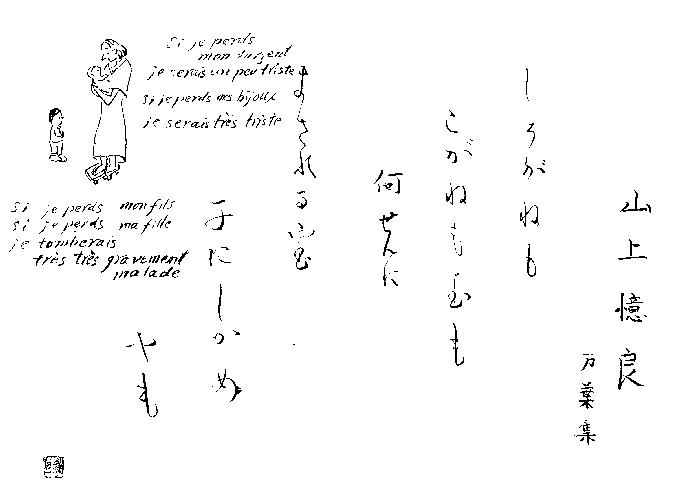 山上憶良
万葉集
しろがねも
こがねも玉も
何せんに
まされる宝
子にしかめ
やも
si je perds
mon argent
je serais un peu triste
si je perds mes bijoux
je serais très triste
si je perds mon fils
si je perds ma fille
je tomberais
très très gravement
malade